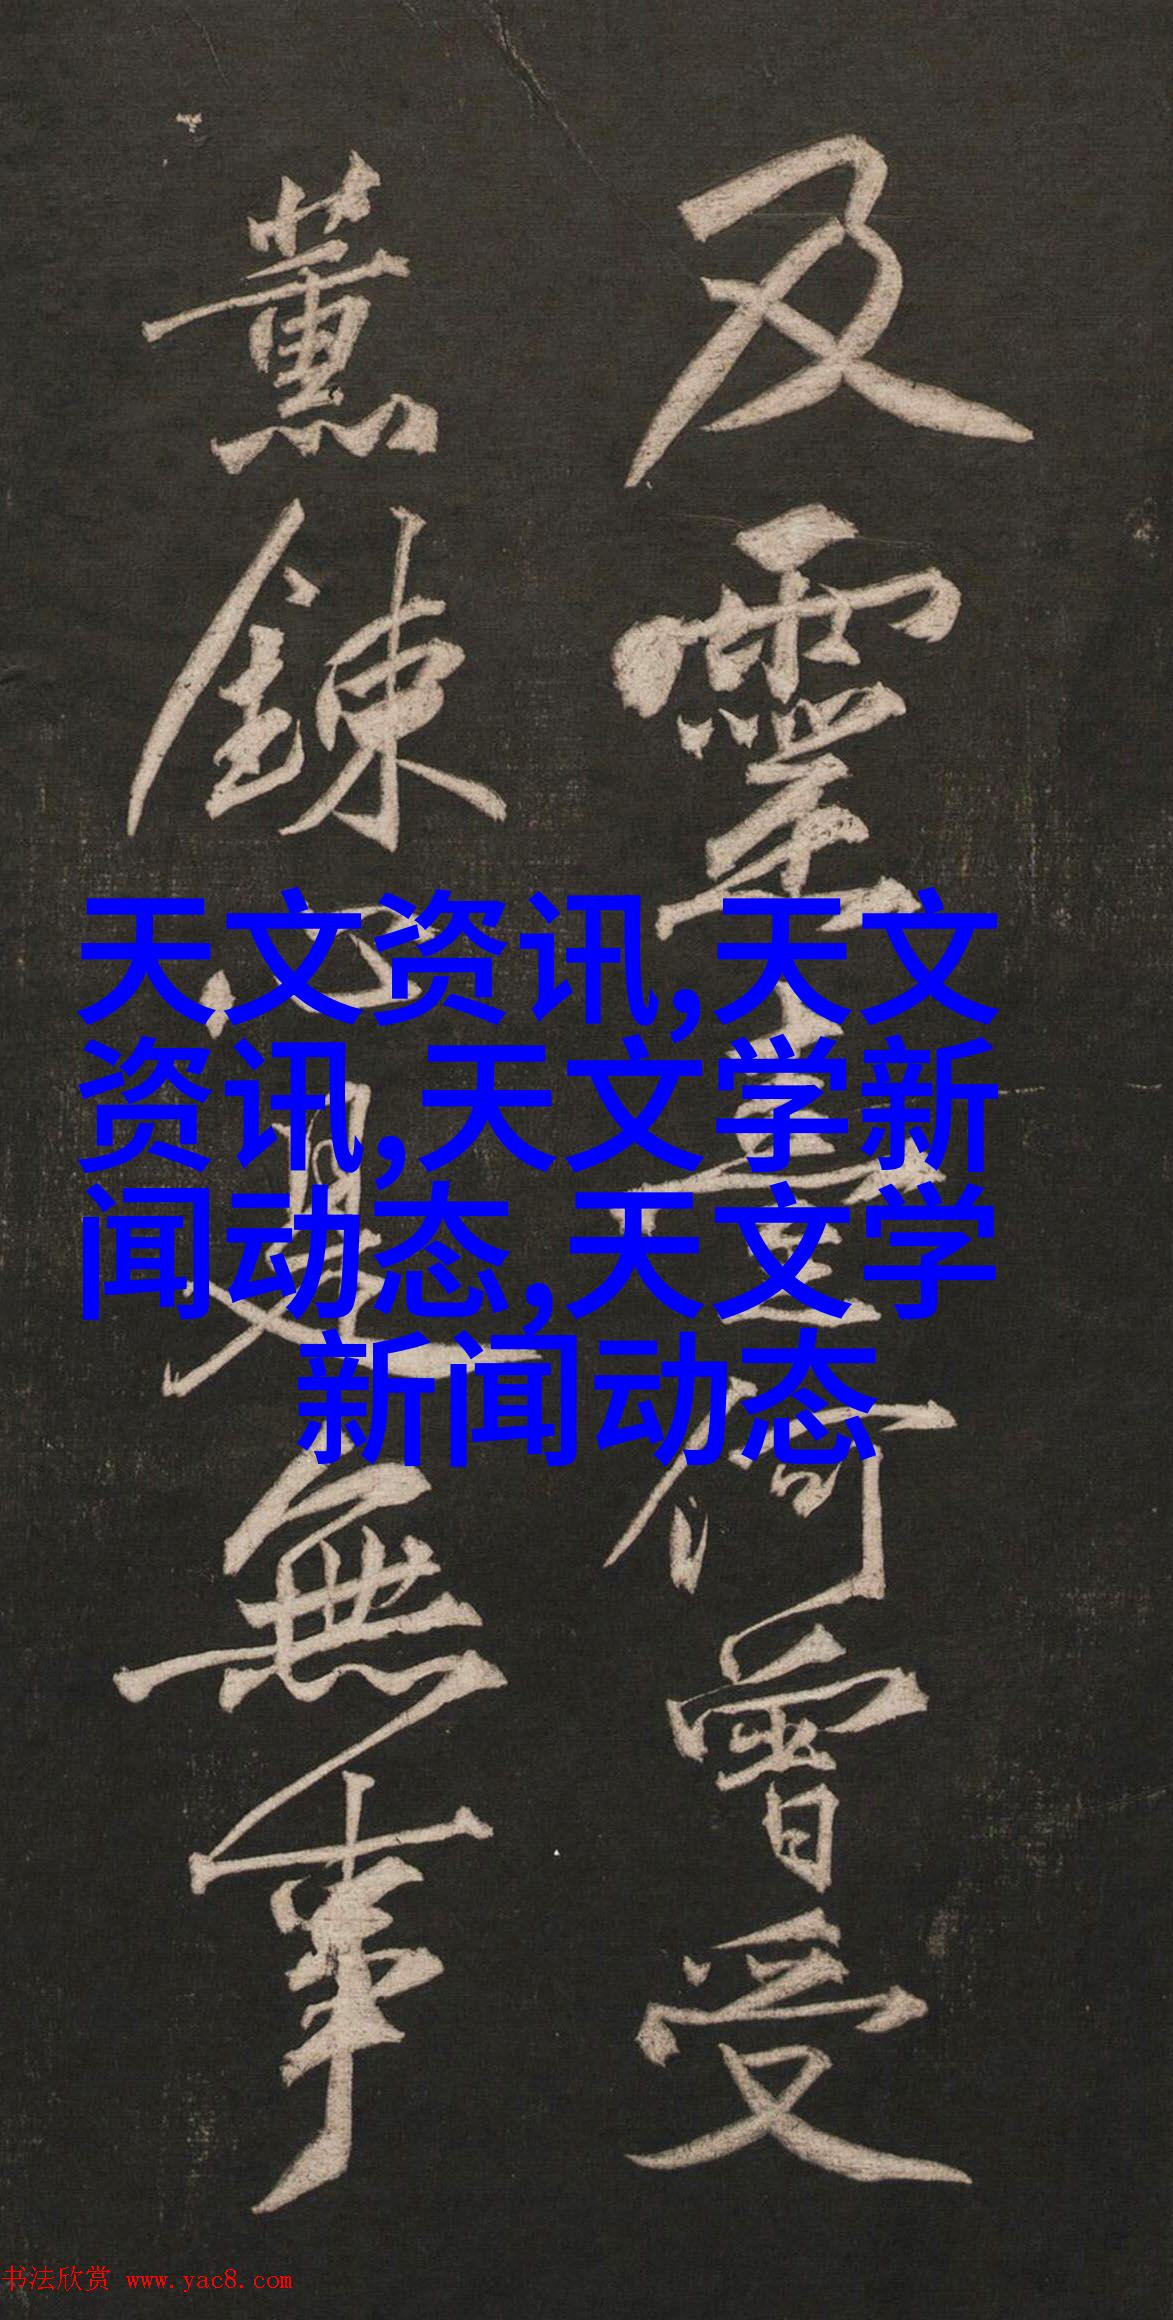 及靈臺何曾受
薰鍊心是無事
天文资讯,天文
资讯,天文学新
闻动态,天文学
新闻动态
书法欣赏 www.yac8.com